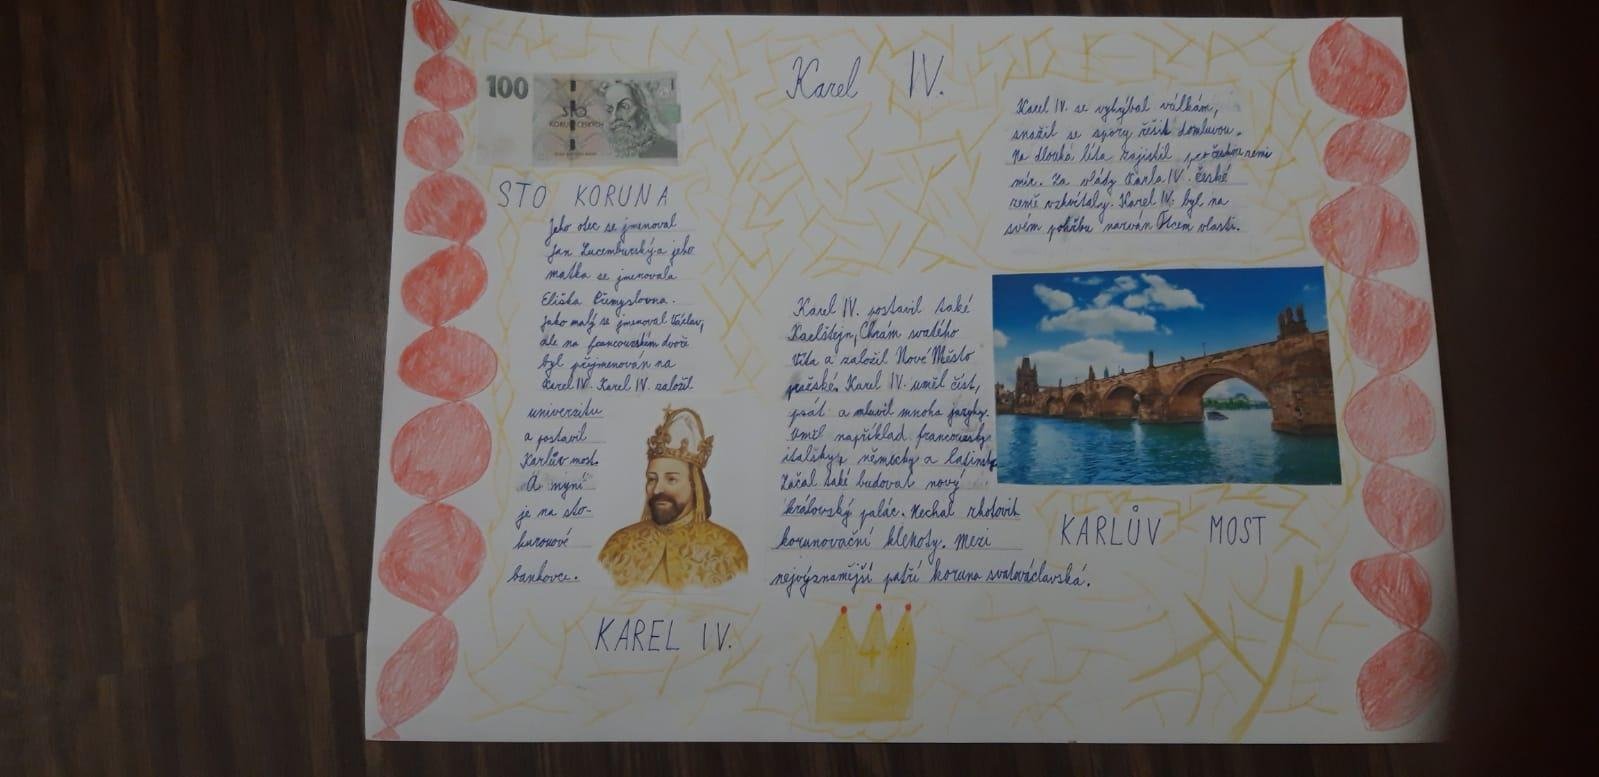 Karel IV.
100
STO
KORUN ČESKÝCH
STO KORUNA
Jeho otec se jmenoval
Jan Lucemburský a jeho
matka se jmenovala
Eliška Přemyslovna.
Jako malý se jmenoval Václav,
ale na francouzském dvoře
byl přejmenován na
Karel IV. Karel IV. založil
univerzitu
a postavil
Karlův most.
A nyní
je na sto-
korunové
bankovce.
KAREL IV.
Karel IV. postavil také
Karlštejn, Chrám svatého
Víta a založil Nové Město
pražské. Karel IV. uměl číst,
psát a mluvil mnoha jazyky.
Uměl například francouzsky
italsky, německy a latinsky.
Začal také budovat nový
královský palác. Nechal zhotovit
korunovační klenoty. Mezi
nejvýznamější patří koruna svatováclavská.
Karel IV. se vyhýbal válkám,
snažil se spory řešit domluvou.
Na dlouhá léta zajistil pro českou zemi
mír. Za vlády Karla IV. české
země vzkvétaly. Karel IV. byl na
svém pohřbu nazván Otcem vlasti.
KARLŮV MOST